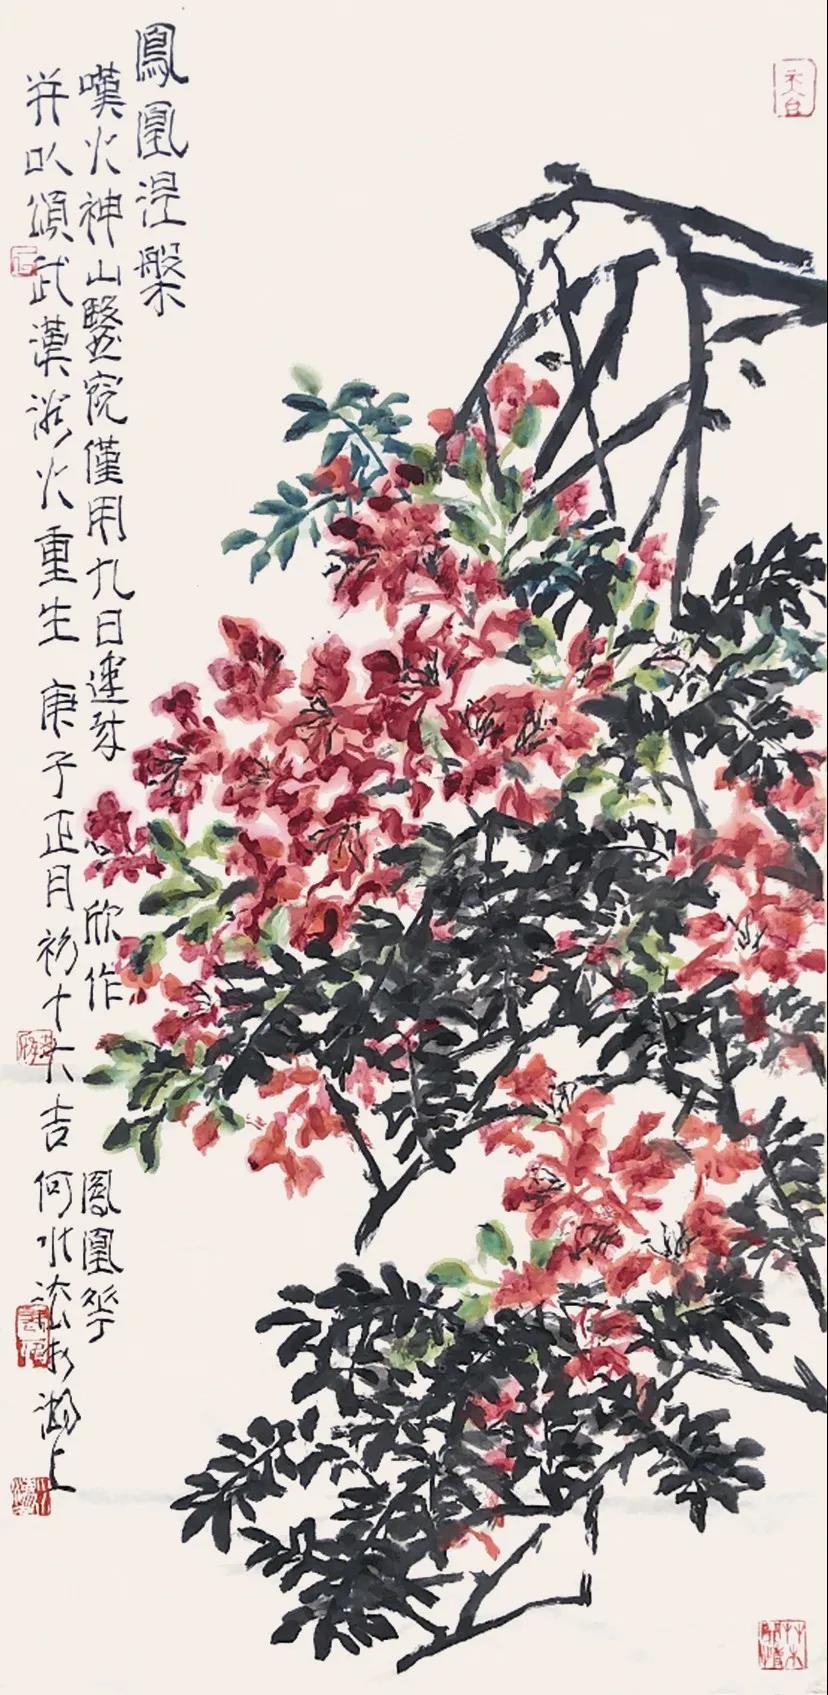 鳳凰涅槃
嘆火神山醫院僅用九日建成 欣作 鳳凰花
并以頌武漢浴火重生 庚子正月初十大吉 何水法於湖上